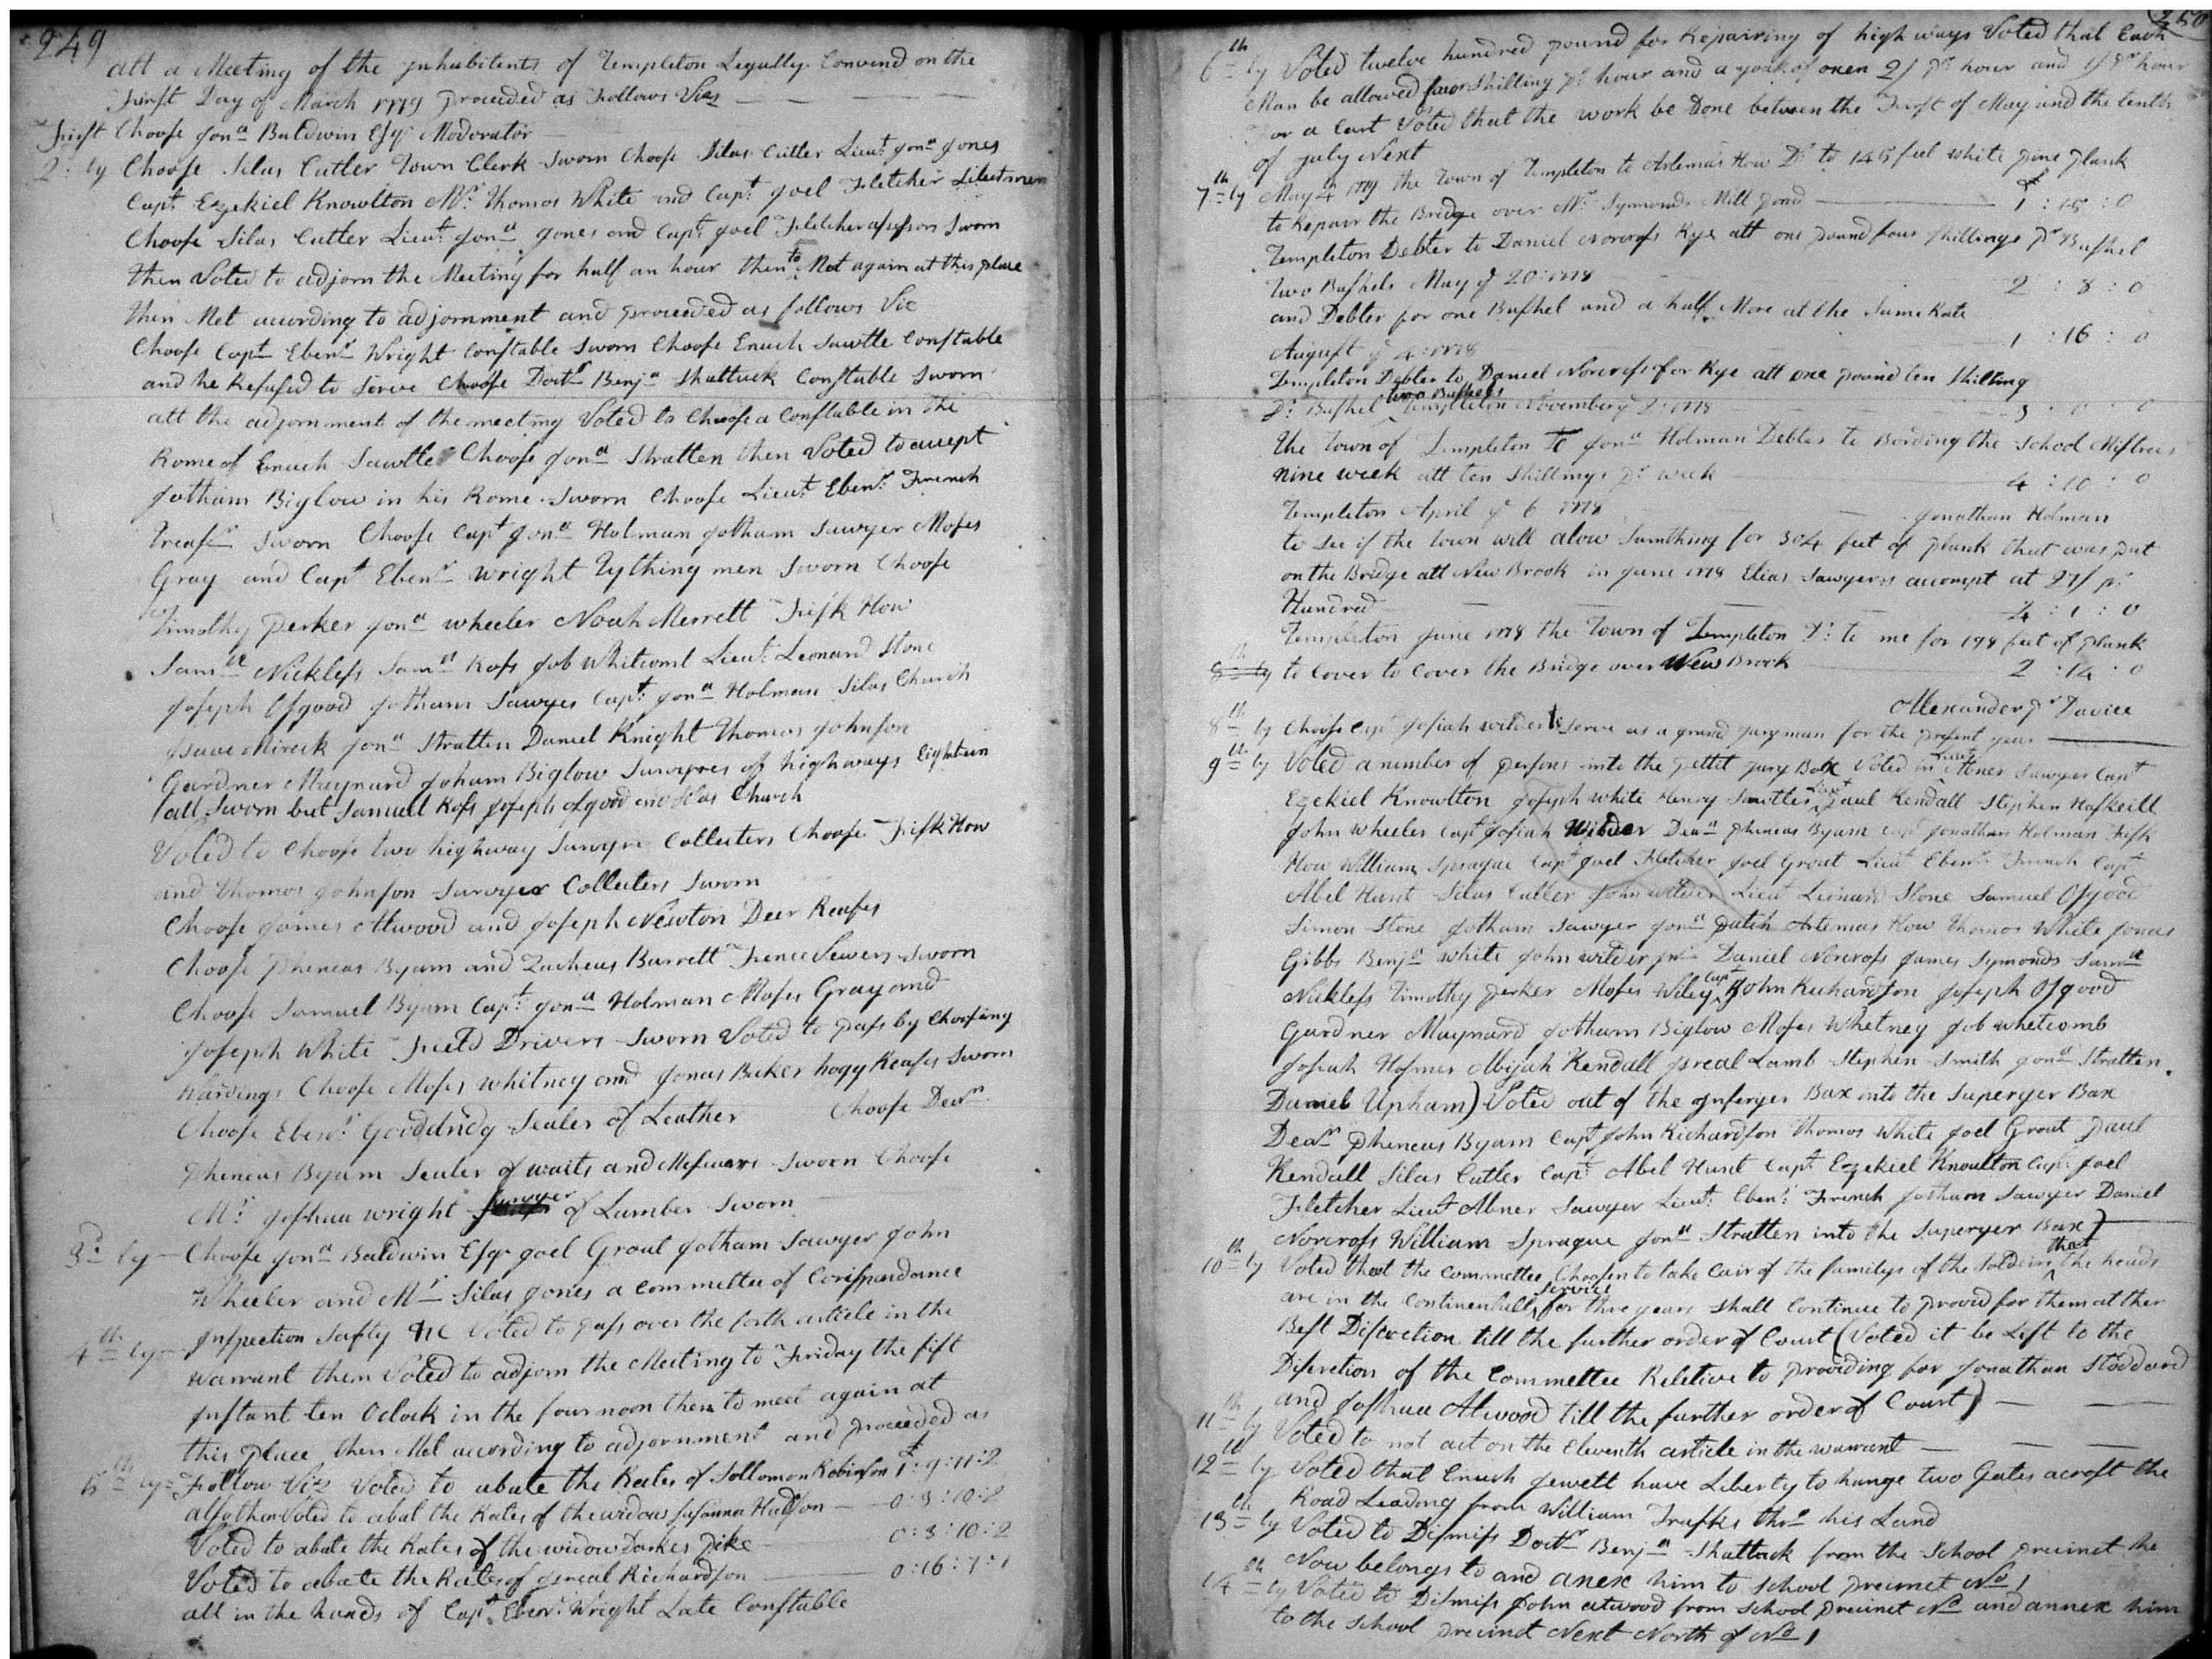 249
att a Meeting of the Inhabitents of Templeton Legally Convend on the
First Day of March 1779 proceeded as Follows Viz
First Choose Jona Baldwin Esqr Moderator
2:ly Choose Silas Cutler Town Clerk Sworn Choose Silas Cutler Lieut Jona Jones
Capt Ezekiel Knowlton Mr Thomas White and Capt Joel Fletcher Silectmen
Choose Silas Cutler Lieut Jona Jones and Capt Joel Fletcher assessors Sworn
then Voted to adjorn the Meeting for half an hour then to Met again at this place
then Met acording to adjornment and proceeded as follows Vic
Choose Capt Ebenr Wright Constable Sworn Choose Enuch Sawtle Constable
and he Refused to Serve Choose Doctr Benja Shattuck Constable Sworn
att the adjornment of the meeting Voted to Choose a Constable in the
Rome of Enuch Sawtle Choose Jona Stratten then Voted to accept
Jotham Biglow in his Rome Sworn Choose Lieut Ebenr French
Treasr Sworn Choose Capt Jona Holman Jotham Sawyer Moses
Gray and Capt Ebenr Wright Tything men Sworn Choose
Timothy Perker Jona Wheeler Noah Merrett Fisk How
Samll Nickless Samll Ross Job Whitcomb Lieut Leonard Stone
Joseph Osgood Jotham Sawyer Capt Jona Holman Silas Church
Isaac Mireck Jona Stratten Daniel Knight Thomas Johnson
Gardner Maynard Joham Biglow Survyres of highways Eighteen
(all Sworn but Samuell Ross Joseph Osgood and Silas Church
Voled to Choose two highway Survyre Collecters Choose Fisk How
and Thomas Johnson Survyer Collecters Sworn
Choose James Atwood and Joseph Newton Deer Reafes
Choose Pheneas Byam and Zacheus Barrett Fence Vewers Sworn
Choose Samuel Byam Capt Jona Holman Moses Gray and
Joseph White Field Drivers Sworn Voted to pass by Choosing
Wardings Choose Moses Whitney and Jonas Beker hogg Reafes Sworn
Choose Ebenr Gooddridg Sealer of Leather Choose Dean
Pheneas Byam Sealer of waits and Mesuers Sworn Choose
Mr Joshua Wright Survyer of Lumber Sworn
3d ly Choose Jona Baldwin Esqr Joel Grout Jotham Sawyer John
Wheeler and Mr Silas Jones a Committee of Corispandance
Inspection Safty &c
4th ly Voted to pass over the forth article in the
warrant then Voted to adjorn the Meeting to Friday the fift
Instant ten Oclock in the four noon then to meet again at
this place then Met according to adjornment and proceeded as
5th ly Follow Viz Voted to abate the Rates of Sollomon Robinson £1:9:11:2
also then Voted to abat the Rates of the widow Susanna Hudson 0:3:10:2
Voted to abate the Rates of the widow Dorkes Pike 0:3:10:2
Voted to abate the Rates of Isreal Richardson 0:16:7:1
all in the hands of Capt Ebenr Wright Late Constable
250
6th ly Voted twelve hundred pound for Repairing of high ways Voted that Each
Man be allowed four Shilling pr hour and a yoak of oxen 2/ pr hour and 1/ pr hour
for a Cart Voted that the work be Done between the First of May and the tenth
of July Next
7th ly May 4 1779 the Town of Templeton to Artemas How Dr to 145 feet white pine plank
to Repair the Bridge over Mr Symonds Mill pond £1:15:0
Templeton Debter to Daniel Norcross Rye att one pound four shillings pr Bushel
two Bushels May ye 20:1778 2:8:0
and Debter for one Bushel and a half More at the Same Rate
August ye 4:1778 1:16:0
Templeton Debter to Daniel Norcross for Rye att one pound ten Shilling
pr Bushel two Bushels Templeton November ye 2:1778 3:0:0
the Town of Templeton to Jona Holman Debter to Bording the School Mistress
nine week att ten Shillings pr week 4:10:0
Templeton April ye 6 1778 Jonathan Holman
to See if the town will alow Sumthing for 304 feet of plank that was put
on the Bridge att New Brook in June 1778 Elias Sawyers accompt at 27/ pr
Hundred 4:1:0
Templeton June 1778 the Town of Templeton Dr to me for 198 feet of plank
8th ly to Cover to Cover the Bridge over New Brook 2:14:0
Allexander Davice
8th ly Choose Capt Josiah Wilder to Serve as a grand Jury man for the present year
9th ly Voted a number of persons into the pettit Jury Box Voted in Lieut Abner Sawyer Capt
Ezekiel Knowlton Joseph White Henry Sawtle Lieut Paul Kendall Stephen Haskeill
John Wheeler Capt Josiah Wilder Dean Pheneas Byam Capt Jonathan Holman Fisk
How William Sprague Capt Joel Fletcher Joel Grout Lieut Ebenr French Capt
Abel Hunt Silas Cutler John Wilder Lieut Leonard Stone Samuel Osgood
Simon Stone Jotham Sawyer Jona Patch Artemas How Thomas White Jonas
Gibbs Benja White John Wilder jnr Daniel Norcross James Symonds Samll
Nickless Timothy Perker Moses Wiley Capt John Richardson Joseph Osgood
Gardner Maynard Jotham Biglow Moses Whetney Job Whetcomb
Josiah Hosmer Abijah Kendall Isreal Lamb Stephen Smith Jona Stratten
Daniel Upham) Voted out of the Inferyer Box into the Superyer Box
Dean Pheneas Byam Capt John Richardson Thomas White Joel Grout Paul
Kendall Silas Cutler Capt Abel Hunt Capt Ezekiel Knoulton Capt Joel
Fletcher Lieut Abner Sawyer Lieut Ebenr French Jotham Sawyer Daniel
Norcross William Sprague Jona Stratten into the Superyer Box)
10th ly Voted that the Committee Choosen to take Cair of the familys of the Soldiers that the heads
are in the Continentall Service for thre years Shall Continue to provid for them at ther
Best Discretion till the further order of Court (Voted it be Left to the
Discretion of the Committee Reletive to providing for Jonathan Stoddard
and Joshua Atwood till the further order of Court)
11th ly Voted to not act on the Eleventh article in the warrant
12th ly Voted that Enuch Jewett have Liberty to hange two Gates acrost the
Road Leading from William Trasks thro his Land
13th ly Voted to Dismiss Doctr Benja Shattuck from the School precinct he
Now belongs to and anex him to School precinct No 1
14th ly Voted to Dismiss John atwood from School precinct No and annex him
to the School precinct Next North of No 1